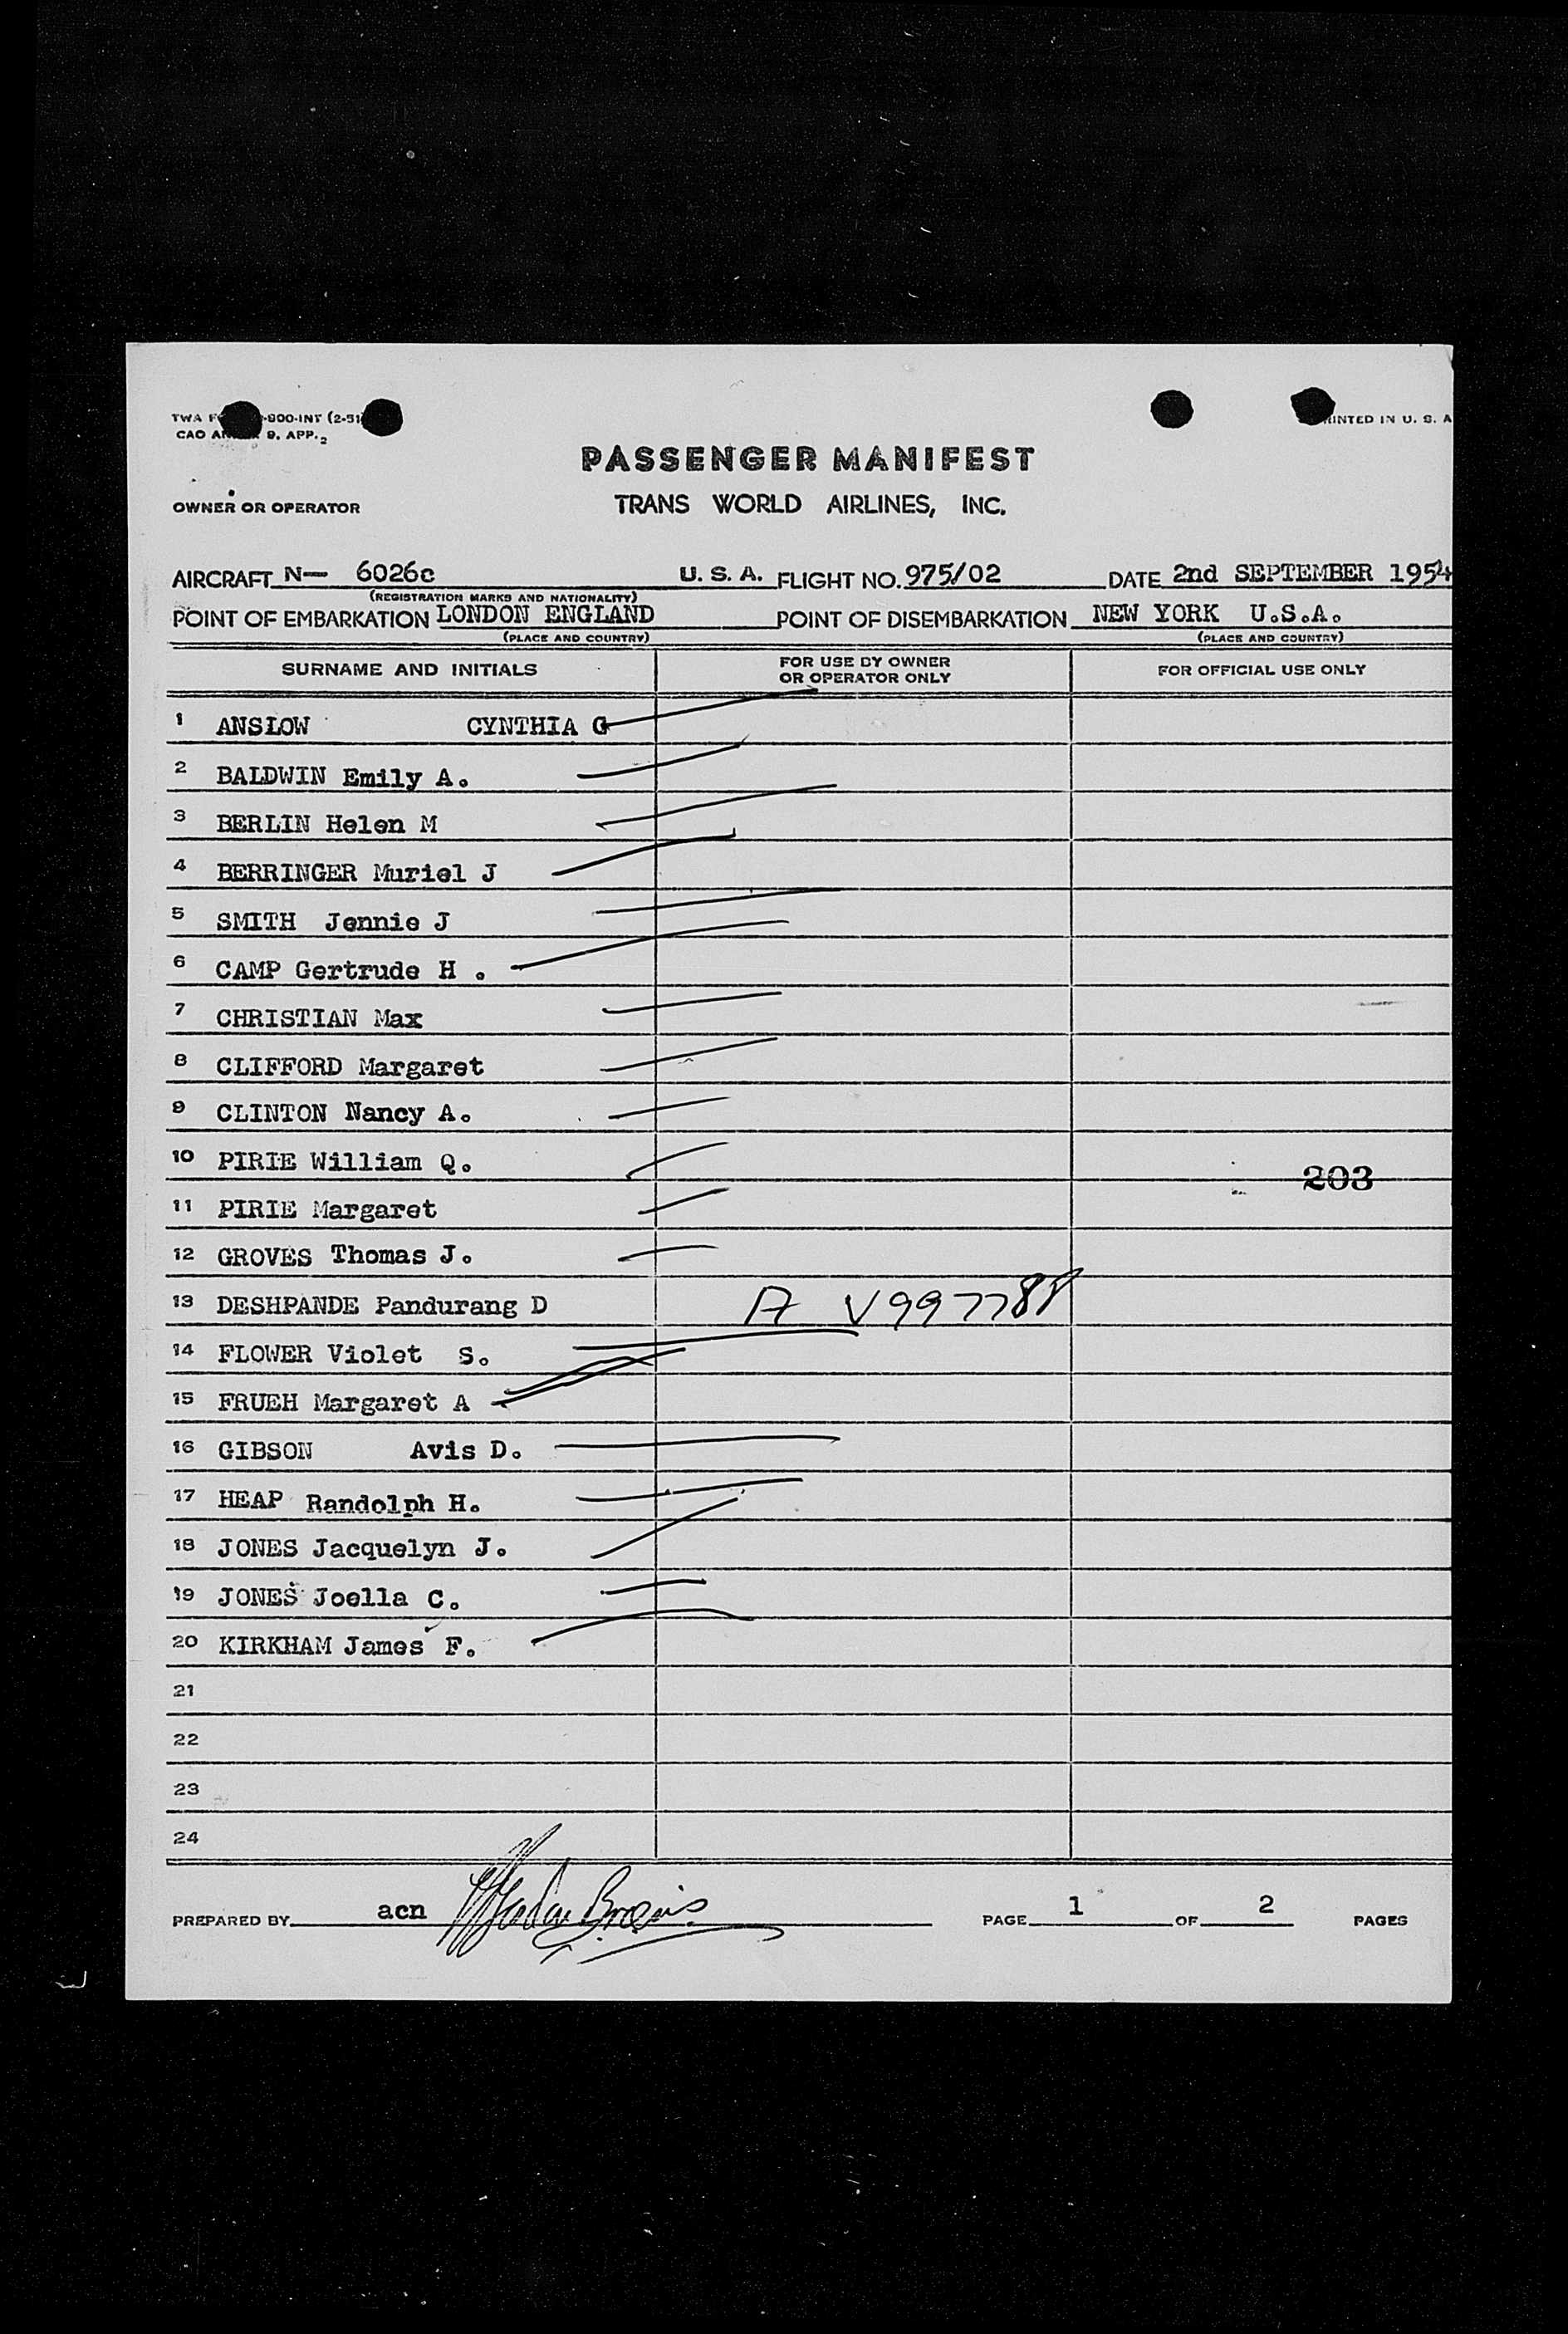 TWA F -900-INT (2-51
CAO AN 9. APP. 2
INTED IN U. S. A
PASSENGER MANIFEST
OWNER OR OPERATOR
TRANS WORLD AIRLINES, INC.
AIRCRAFT N— 6026c U. S. A. FLIGHT NO. 975/02 DATE 2nd SEPTEMBER 1954
(REGISTRATION MARKS AND NATIONALITY)
POINT OF EMBARKATION LONDON ENGLAND POINT OF DISEMBARKATION NEW YORK U.S.A.
(PLACE AND COUNTRY) (PLACE AND COUNTRY)
SURNAME AND INITIALS
FOR USE BY OWNER
OR OPERATOR ONLY
FOR OFFICIAL USE ONLY
1 ANSLOW CYNTHIA G
2 BALDWIN Emily A.
3 BERLIN Helen M
4 BERRINGER Muriel J
5 SMITH Jennie J
6 CAMP Gertrude H .
7 CHRISTIAN Max
8 CLIFFORD Margaret
9 CLINTON Nancy A.
10 PIRIE William Q.
203
11 PIRIE Margaret
12 GROVES Thomas J.
13 DESHPANDE Pandurang D A V997788
14 FLOWER Violet S.
15 FRUEH Margaret A
16 GIBSON Avis D.
17 HEAP Randolph H.
18 JONES Jacquelyn J.
19 JONES Joella C.
20 KIRKHAM James F.
21
22
23
24
PREPARED BY acn PAGE 1 OF 2 PAGES